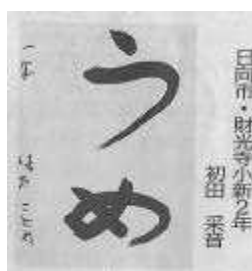 日向市・財光寺小新２年
初田 采音
うめ
一年 はた ことね